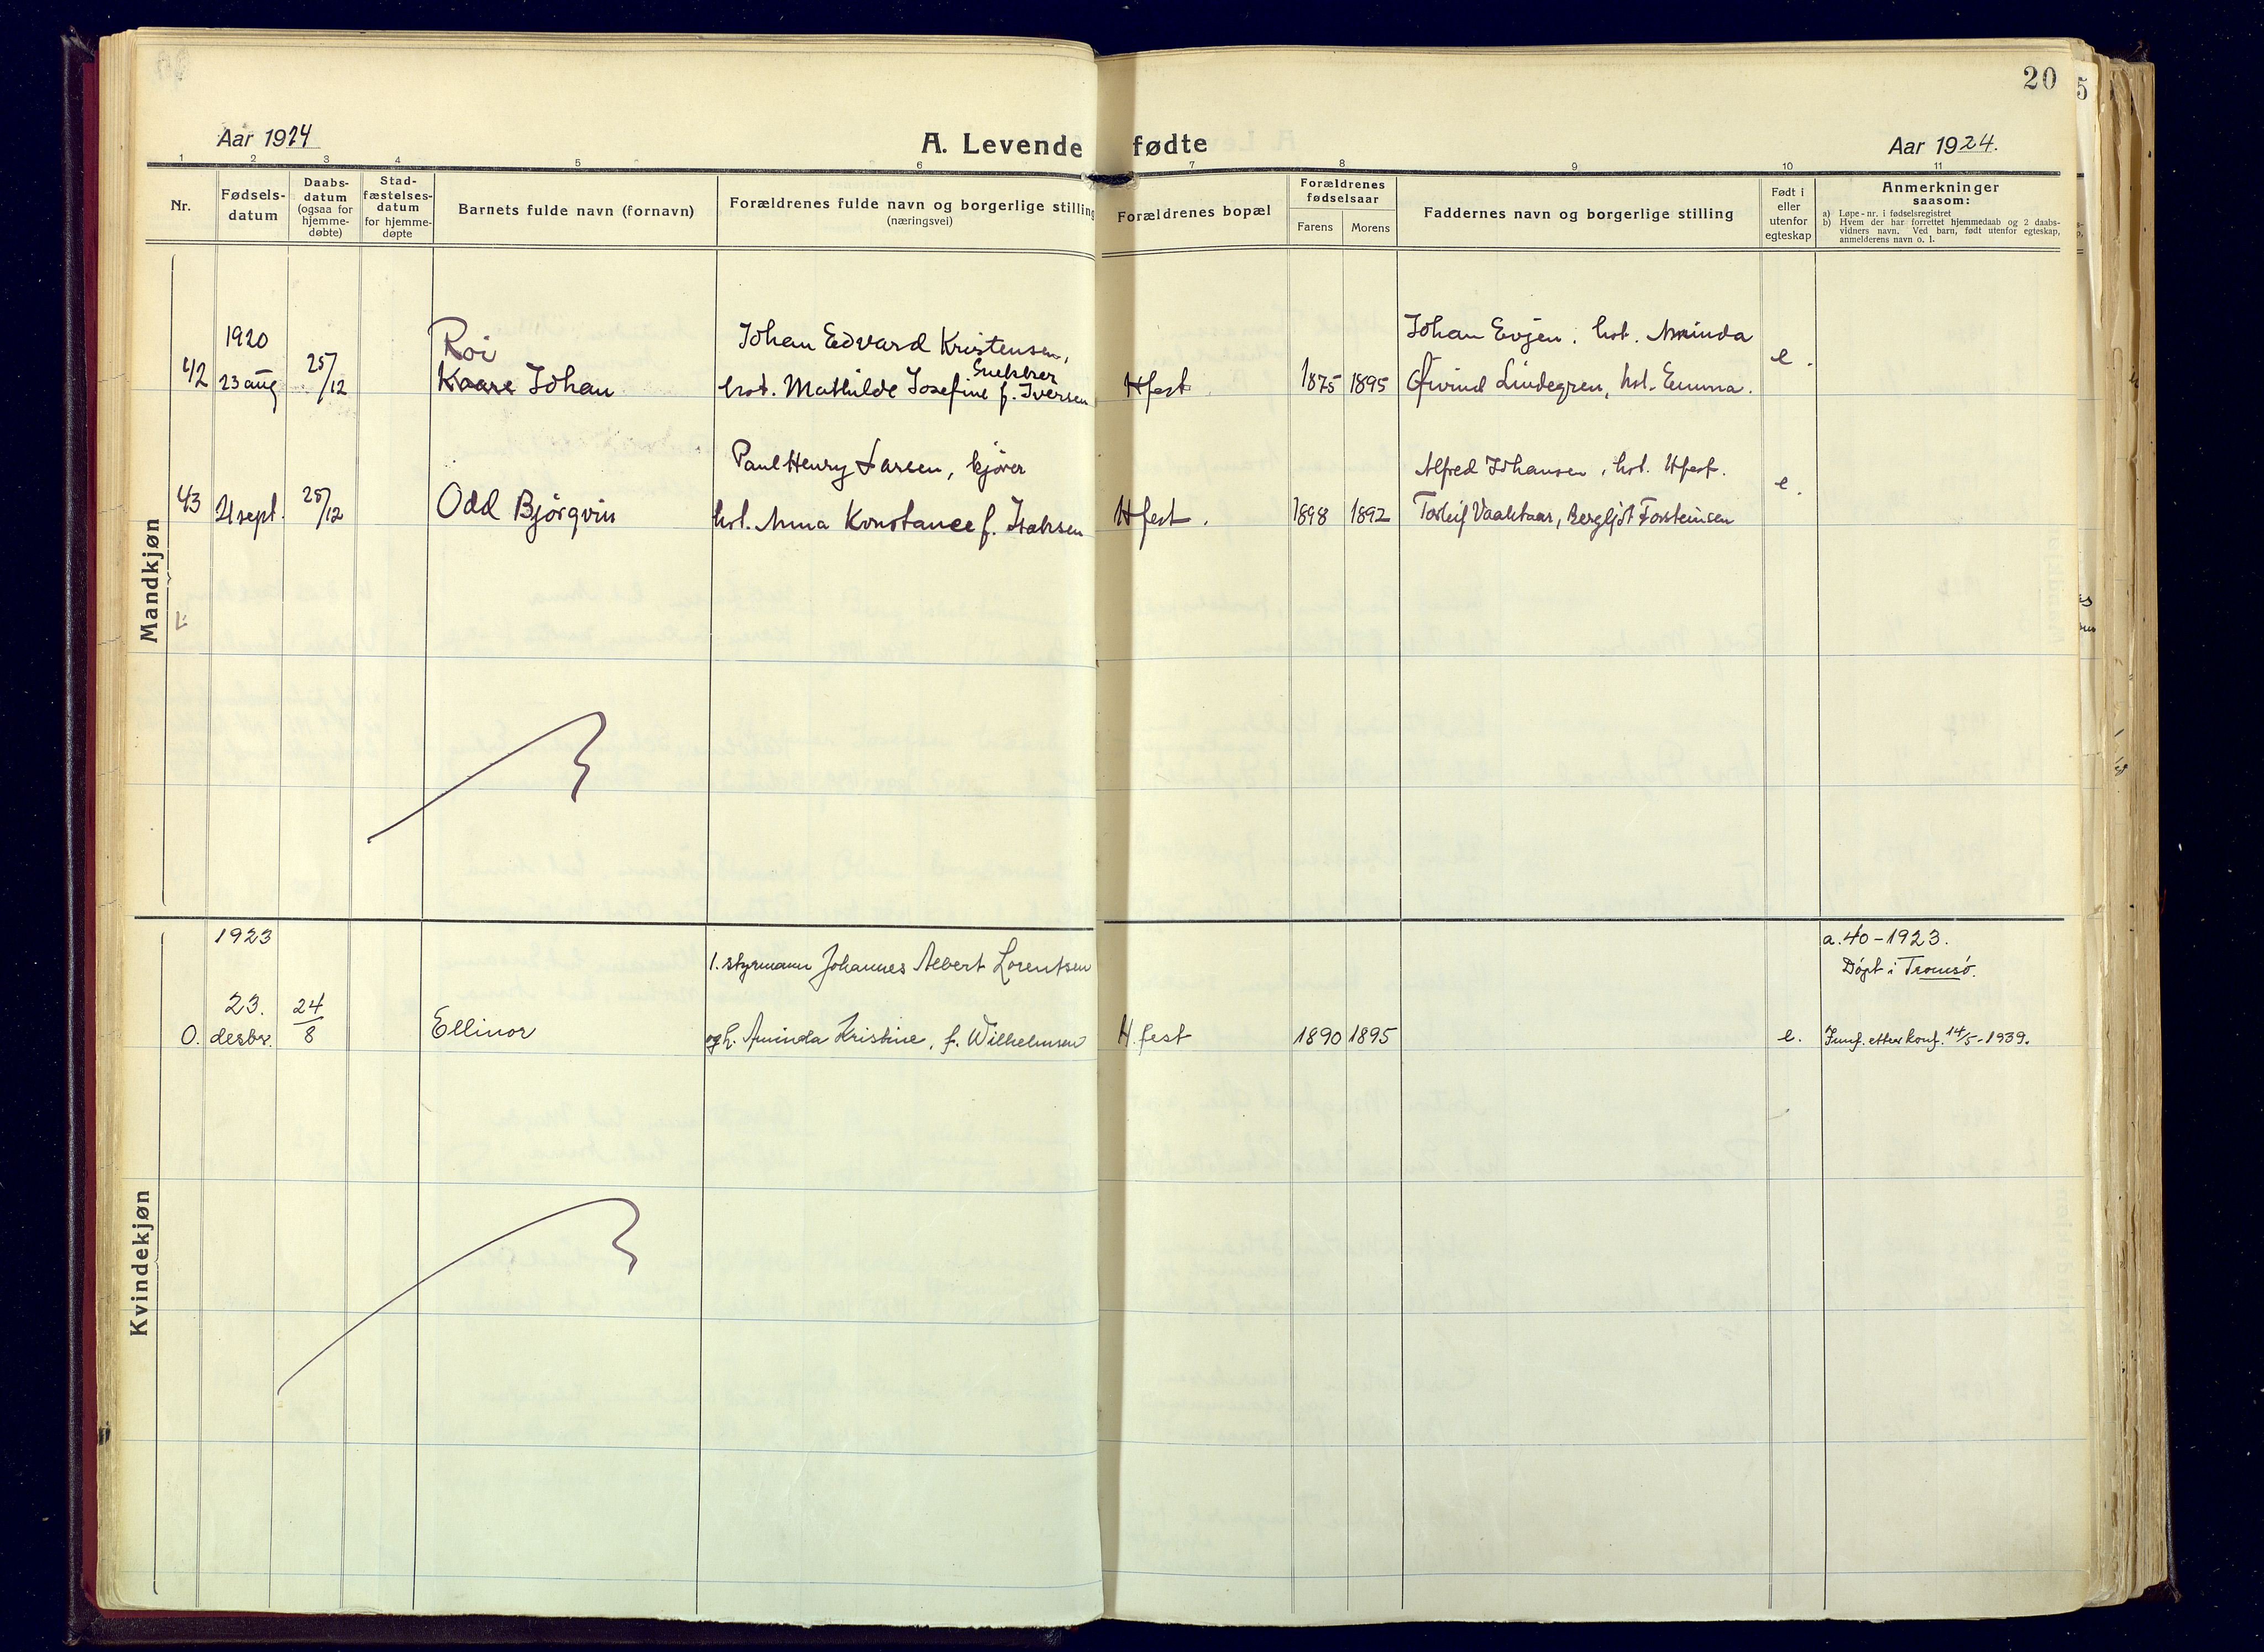 20
Aar 1924
A. Levende fødte
Aar 1924.
1 2 3 4 5 6 7 8 9 10 11
Nr.
Fødsels-
datum
Daabs-
datum
(ogsaa for
hjemme-
døbte)
Stad-
fæstelses-
datum
for hjemme-
døpte
Barnets fulde navn (fornavn)
Forældrenes fulde navn og borgerlige stilling
(næringsvei)
Forældrenes bopæl
Forældrenes
fødselsaar
Farens Morens
Faddernes navn og borgerlige stilling
Født i
eller
utenfor
egteskap
Anmerkninger
saasom:
a) Løpe-nr. i fødselsregistret
b) Hvem der har forrettet hjemmedaab og 2 daabs-
vidners navn. Ved barn, født utenfor egteskap,
anmelderens navn o. l.
Mandkjøn
1920
42 23 aug 25/12
Roi
Kaare Johan
Johan Edvard Kristensen,
Snekker
hst. Mathilde Josefine f. Iversen
Hfest 1875 1895
Johan Evjen, hst. Minda
Øivind Lindegren, hst. Emma.
e.
43 21 sept. 25/12
Odd Bjørgvin
Paul Henry Larsen, kjører
hst. Anna Konstance f. Isaksen
Hfest. 1898 1892
Alfred Johansen, hst. Hfest.
Torleif Vaaktaar, Bergljot Torsteinsen
e.
Kvindekjøn
1923
0. 23. desbr. 24/8
Ellinor
1. styrmann Johannes Albert Lorentsen
og h. Aminda Kristine, f. Wilhelmsen
H.fest 1890 1895
e.
a. 40-1923.
Døpt i Tromsø.
Innf. etter konf. 14/5-1939.